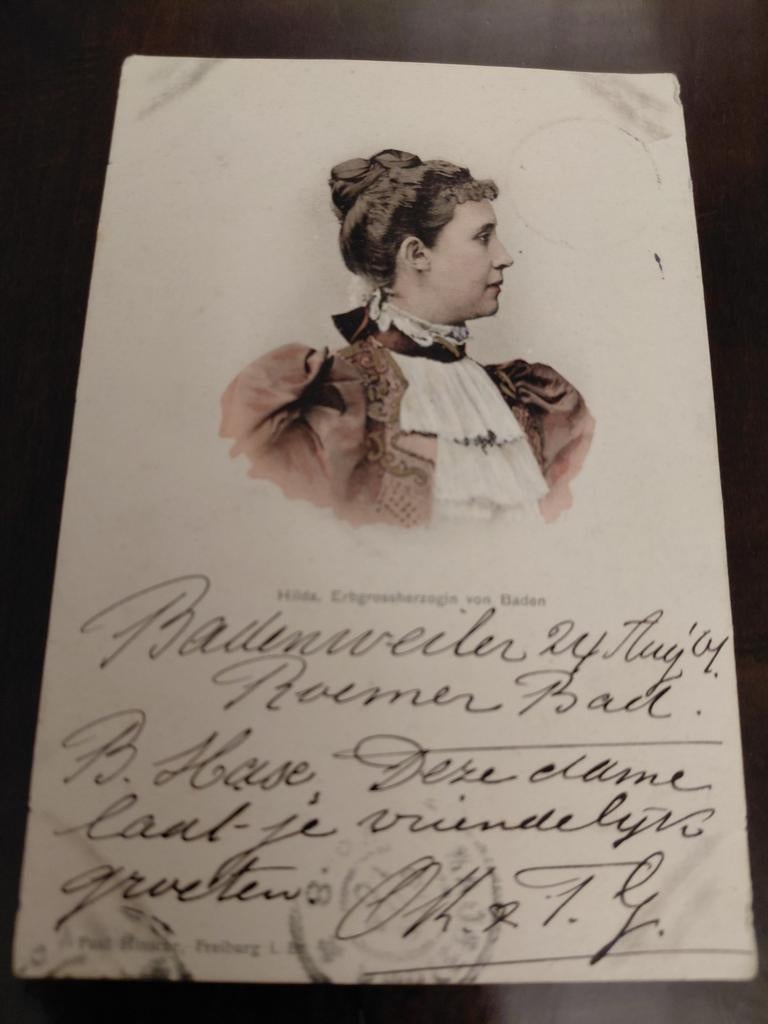 Hilda. Erbgrossherzogin von Baden
Badenweiler 24 Aug '01
Roemer Bad.
B. Hase, Deze dame
laat je vriendelijk
groeten
& T. G.
Freiburg i. Br.